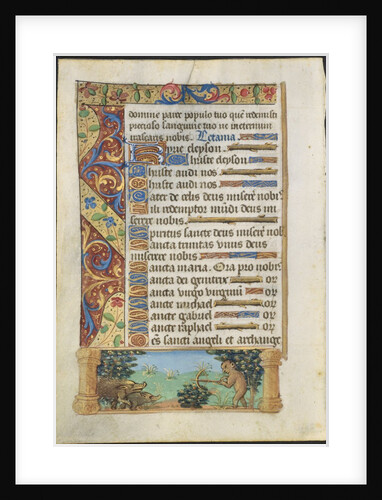 domine parce populo tuo quē redemisti
precioso sanguine tuo ne ineternum
irascaris nobis. Letania.
Kyrie eleyson.
Christe eleyson
Christe audi nos
Christe audi nos
Pater de celis deus miserē nobis
Fili redemptor mūdi deus mi
serere nobis
Spiritus sancte deus miserē nob
Sancta trinitas vnus deus
miserere nobis
Sancta maria. Ora pro nobis
Sancta dei genitrix or
Sancta virgo virginū or
Sancte michael or
Sancte gabriel or
Sancte raphael or
Oēs sancti angeli et archange